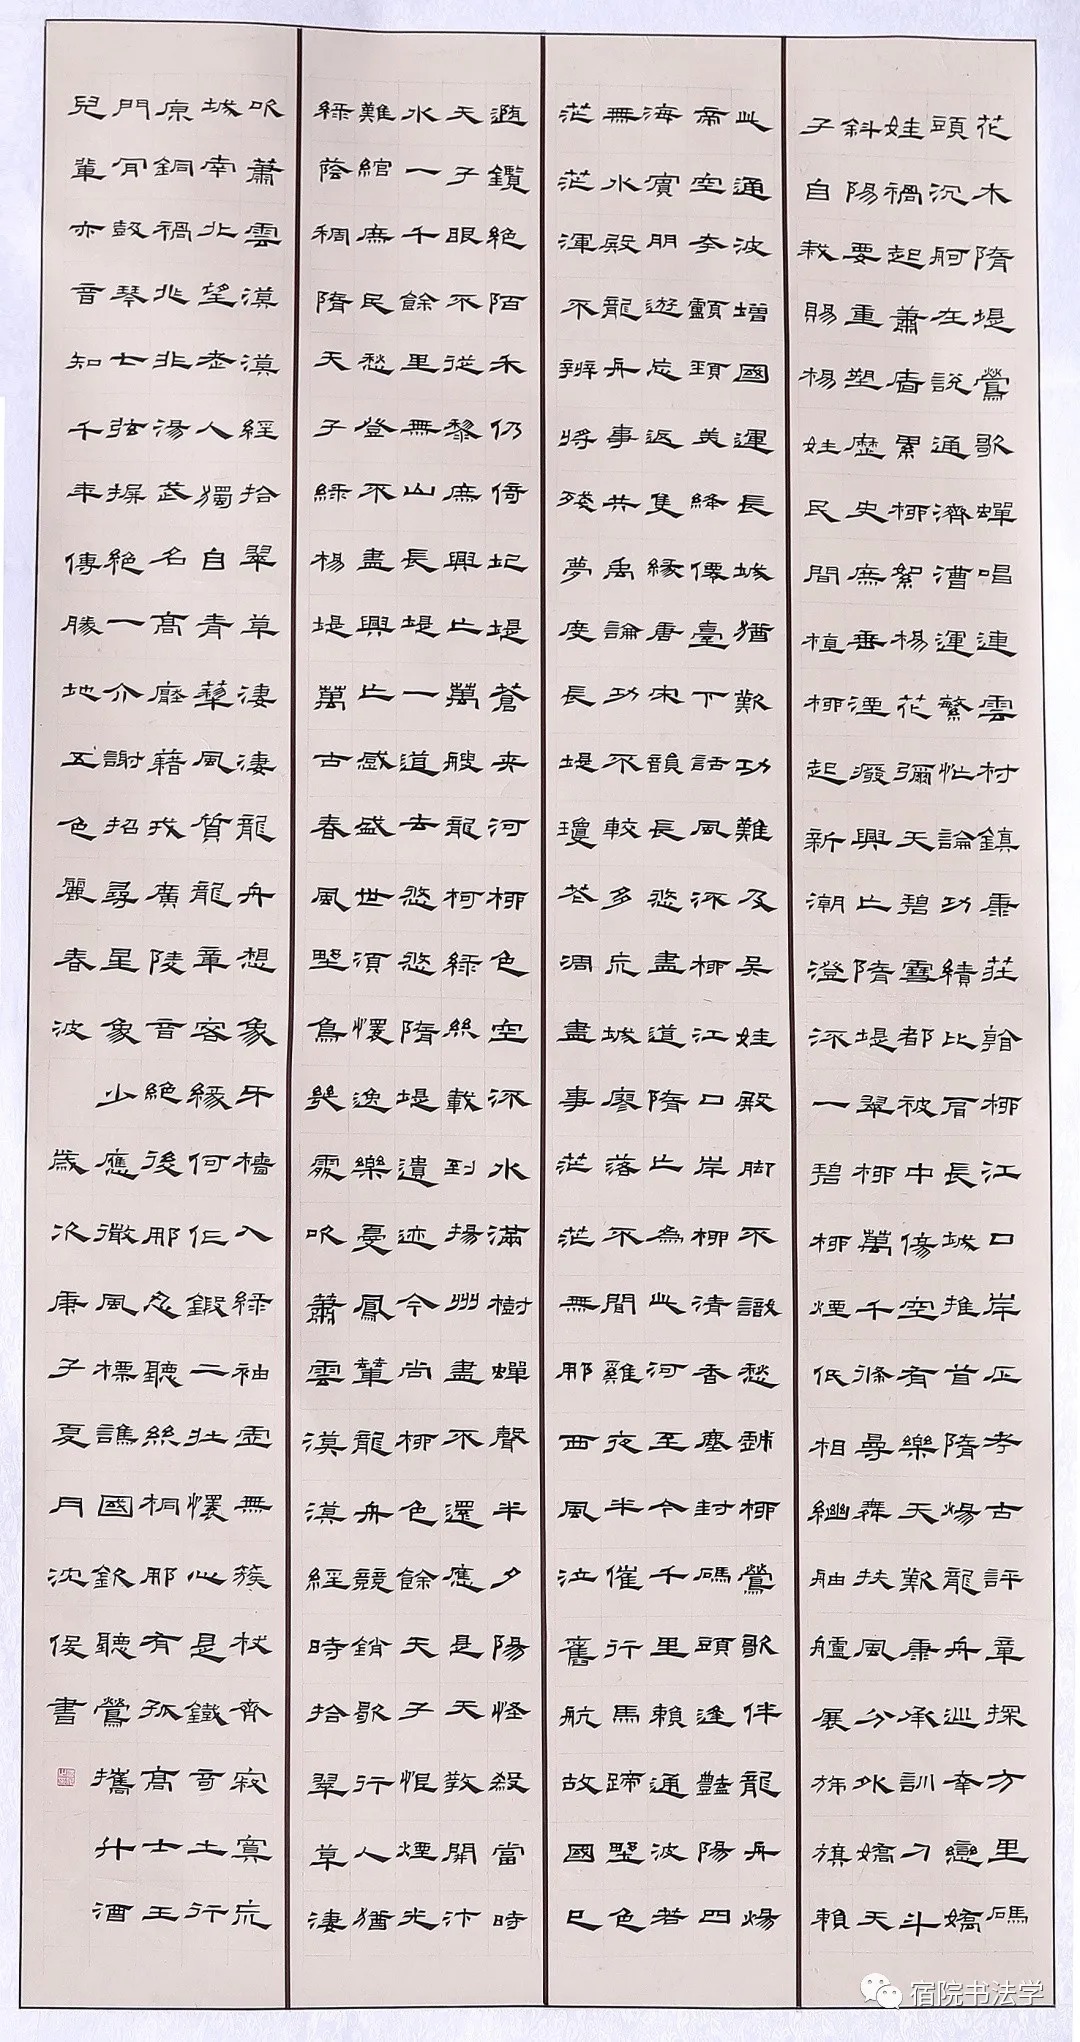 花木隋堤鶯歌蟬唱連雲村鎮康莊翰柳江口岸丘考古評章探方里碼
頭沉舸在說通濟漕運繁忙論功績比肩長城推首隋煬龍舟巡幸戀嬌
娃禍起蕭牆累柳絮楊花彌天碧霄都被中傷空有樂天歎康承訓刁斗
斜陽要重塑歷史廡垂湮廢興亡隋堤翠柳萬千條曼舞扶風分外嬌天
子自栽賜楊姓民間植柳起新潮澄流一碧柳煙低相繼舳艫展旆旗賴
此通波增國運長城猶歎功難及吳娃殿腳不識愁鋪柳鶯歌伴龍舟煬
帝空李顱頸美絳僊臺下話風流柳江口岸柳清香塵封碼頭逢豔陽四
海濱朋遊忘返隻緣唐宋韻長愁盡道隋亡為此河至今千里賴通波若
無水殿龍舟事共禹論功不較多荒城廖落不間雞夜半催行馬蹄野色
茫茫渾不辨將殘夢度長堤瓊花凋盡事茫茫無那西風泣舊航故國已
遊絕陌禾仍倚圮堤蒼來河柳色空流水滿樹蟬聲半夕陽怪殺當時
天子眼不從黎庶興亡萬艘龍柯綠絲載到揚州盡不還應是天教開汴
水一千餘里無山長堤一道去悠悠隋堤遺迹今尚柳色餘天子恨煙光
難綰庶民愁登不盡興亡感盛世須懷逸樂憂鳳輦龍舟競銷歇行人猶
綠蔭稠隋天子綠楊堤萬古春風野鳥幾處吹蕭雲漠漠經時拾翠草淒
吹蕭雲漠漠經拾翠草淒淒龍舟想象牙檣入綠袖虛無簇杖齊寂寞荒
城南北望老人獨自青草風質龍章容緣何任鍛二壯懷心是鐵奇土行
原銅禍兆非湯武名高靡藉戎廣陵音絕後那忍聽絲桐那有孤高士王
門冐鼓琴士弦操絕一介謝招尋星象少應徵風標譙國欽聽鶯攜升酒
兒輩亦音知千年傳勝地五色麗春波
歲次庚子夏月沈俊書
宿院书法学